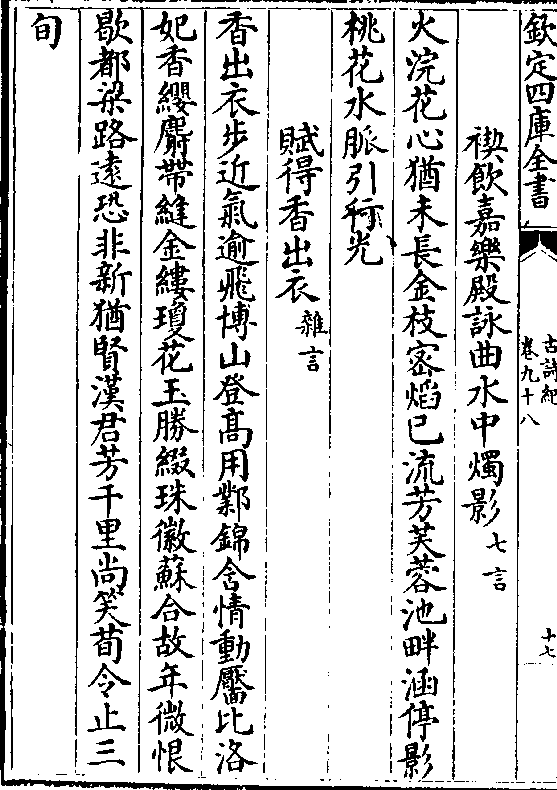 欽定四庫全書
古詩紀
卷九十八
十七
禊飲嘉樂殿詠曲水中燭影七言
火浣花心猶未長金枝密焰已流芳芙蓉池畔涵停影
桃花水脈引行光
賦得香出衣雜言
香出衣步近氣逾飛博山登髙用鄴錦含情動靨比洛
妃香纓麝帶縫金縷瓊花玉勝綴珠徽蘇合故年微恨
歇都梁路遠恐非新猶賢漢君芳千里尚笑荀令止三
旬